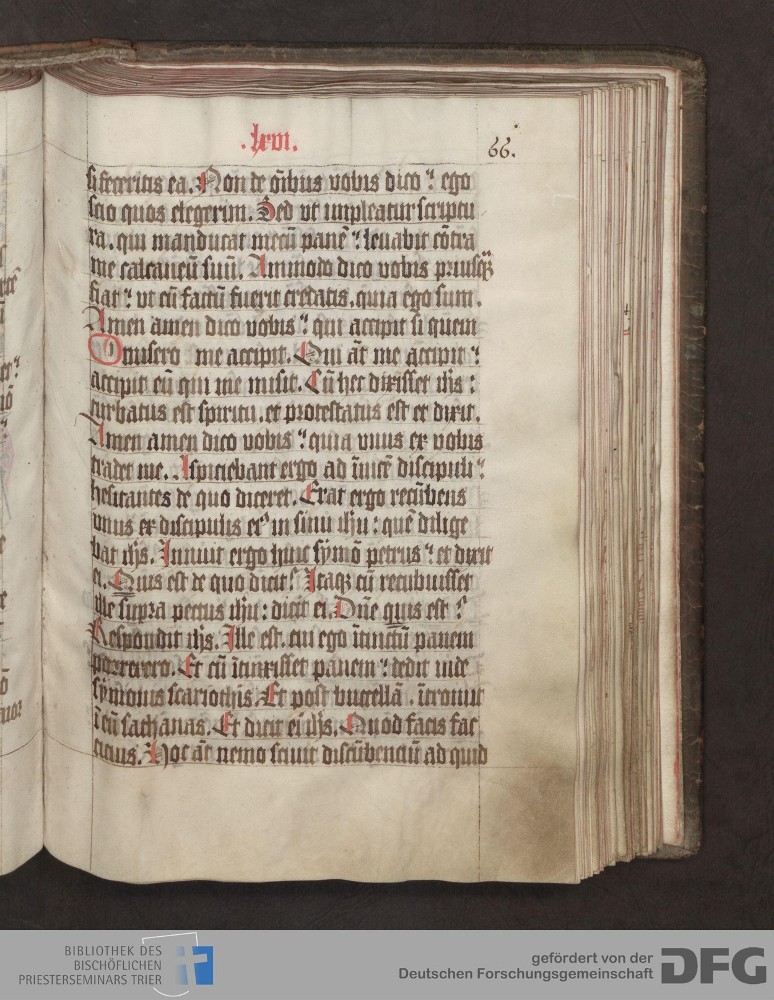 .lxvi.
66.
si feceritis ea. Non de oības vobis dico: ego
scio quos elegerim. Sed vt impleatur scriptu
ra. qui manducat mecū panē: leuabit cōtra
me calcaneū suū. Ammodo dico vobis priusq̄ꝫ
fiat: vt cū factū fuerit credatis. quia ego sum.
Amen amen dico vobis: qui accipit si quem
misero me accipit. Qui āt me accipit:
accipit eū qui me misit. Cū hec dixisset ihs:
turbatus est spiritu. et protestatus est et dixit.
Amen amen dico vobis: quia vnus ex vobis
tradet me. Aspiciebant ergo ad īuicē discipuli:
hesitantes de quo diceret. Erat ergo recūbens
vnus ex discipulis eiꝰ in sinu ihu: quē dilige
bat ihs. Innuit ergo huic symō petrus: et dixit
ei. Quis est de quo dicit? Itaqꝫ cū recubuisset
ille supra pectus ihu: dicit ei. Dn̄e quis est?
Respondit ihs. Ille est. cui ego ītinctū panem
porrexero. Et cū ītinxisset panem: dedit iude
symonis scariothis. Et post buccellā. ītroiuit
ī eū sathanas. Et dicit ei ihs. Quod facis fac
citius. Hoc āt nemo sciuit discūbenciū ad quid
BIBLIOTHEK DES
BISCHÖFLICHEN
PRIESTERSEMINARS TRIER
gefördert von der
Deutschen Forschungsgemeinschaft
DFG